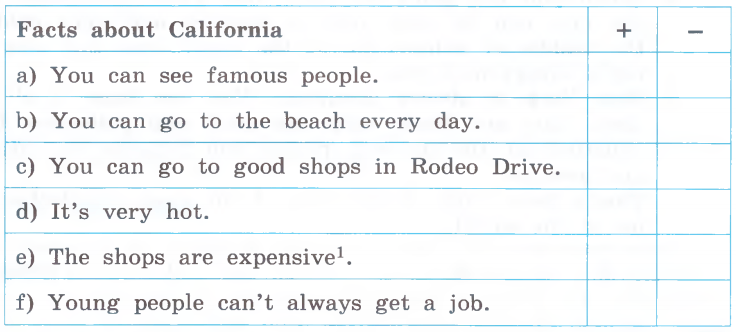 Facts about California + −
a) You can see famous people.
b) You can go to the beach every day.
c) You can go to good shops in Rodeo Drive.
d) It's very hot.
e) The shops are expensive¹.
f) Young people can't always get a job.